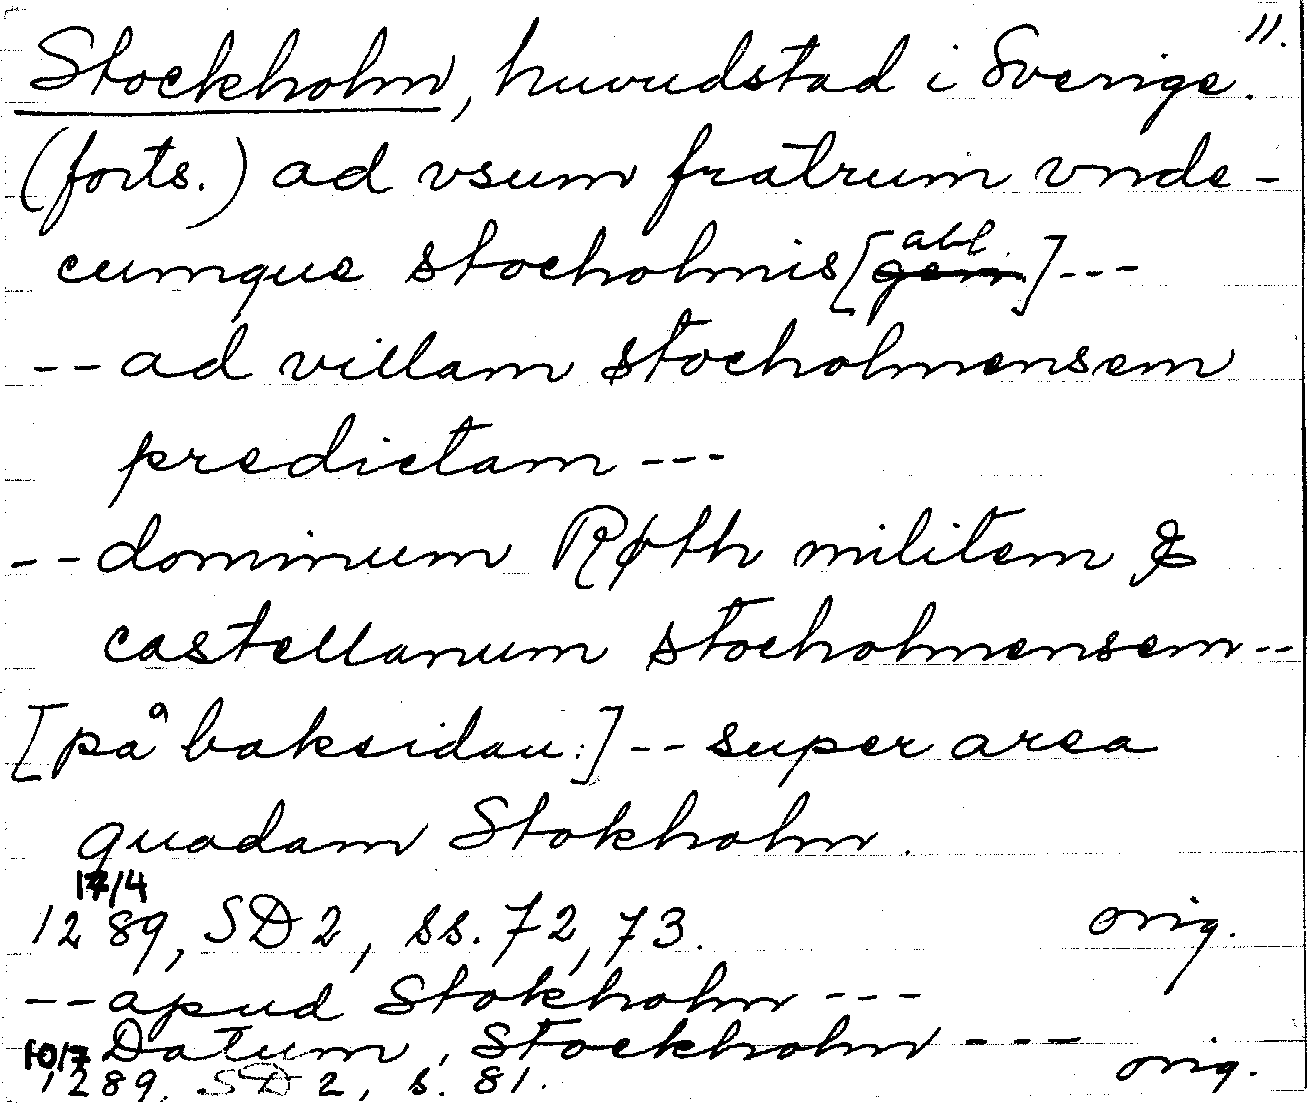 11.
Stockholm, huvudstad i Sverige.
(forts.) ad vsum fratrum vnde-
cumque stocholmis [abl.] ---
-- ad villam stocholmensem
predictam ---
-- dominum Røth militem &
castellanum stocholmensem --
[på baksidan:] -- super area
quadam Stokholm.
17/4
1289, SD 2, ss. 72, 73. orig.
-- apud Stokholm ---
Datum, Stockholm ---
10/7
1289, SD 2, s. 81. orig.